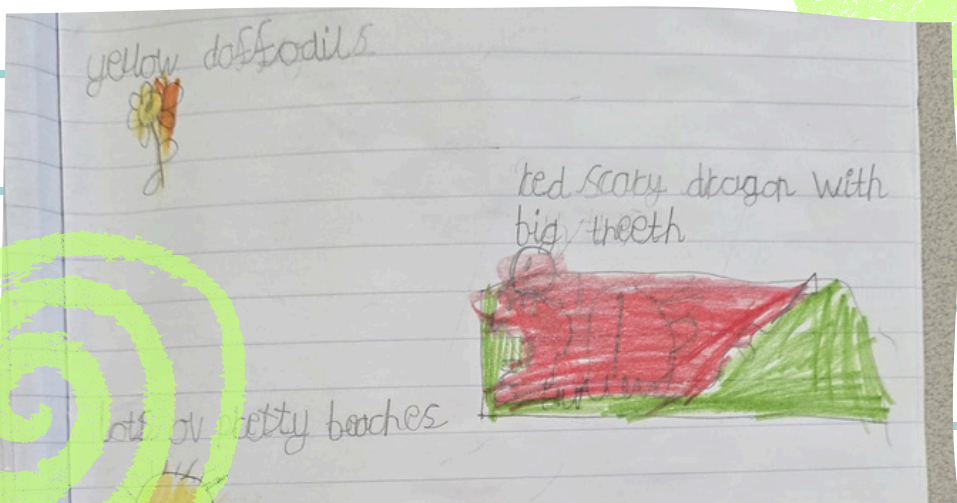 yellow daffodils
red scary dragon with
big theeth
lots ov pretty beaches